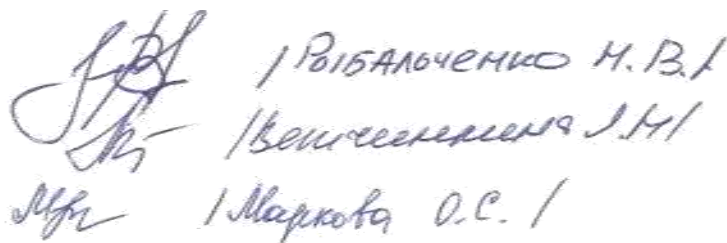 /Рыбальченко Н.В./
/Ветчинкина Л.М/
/Маркова О.С./